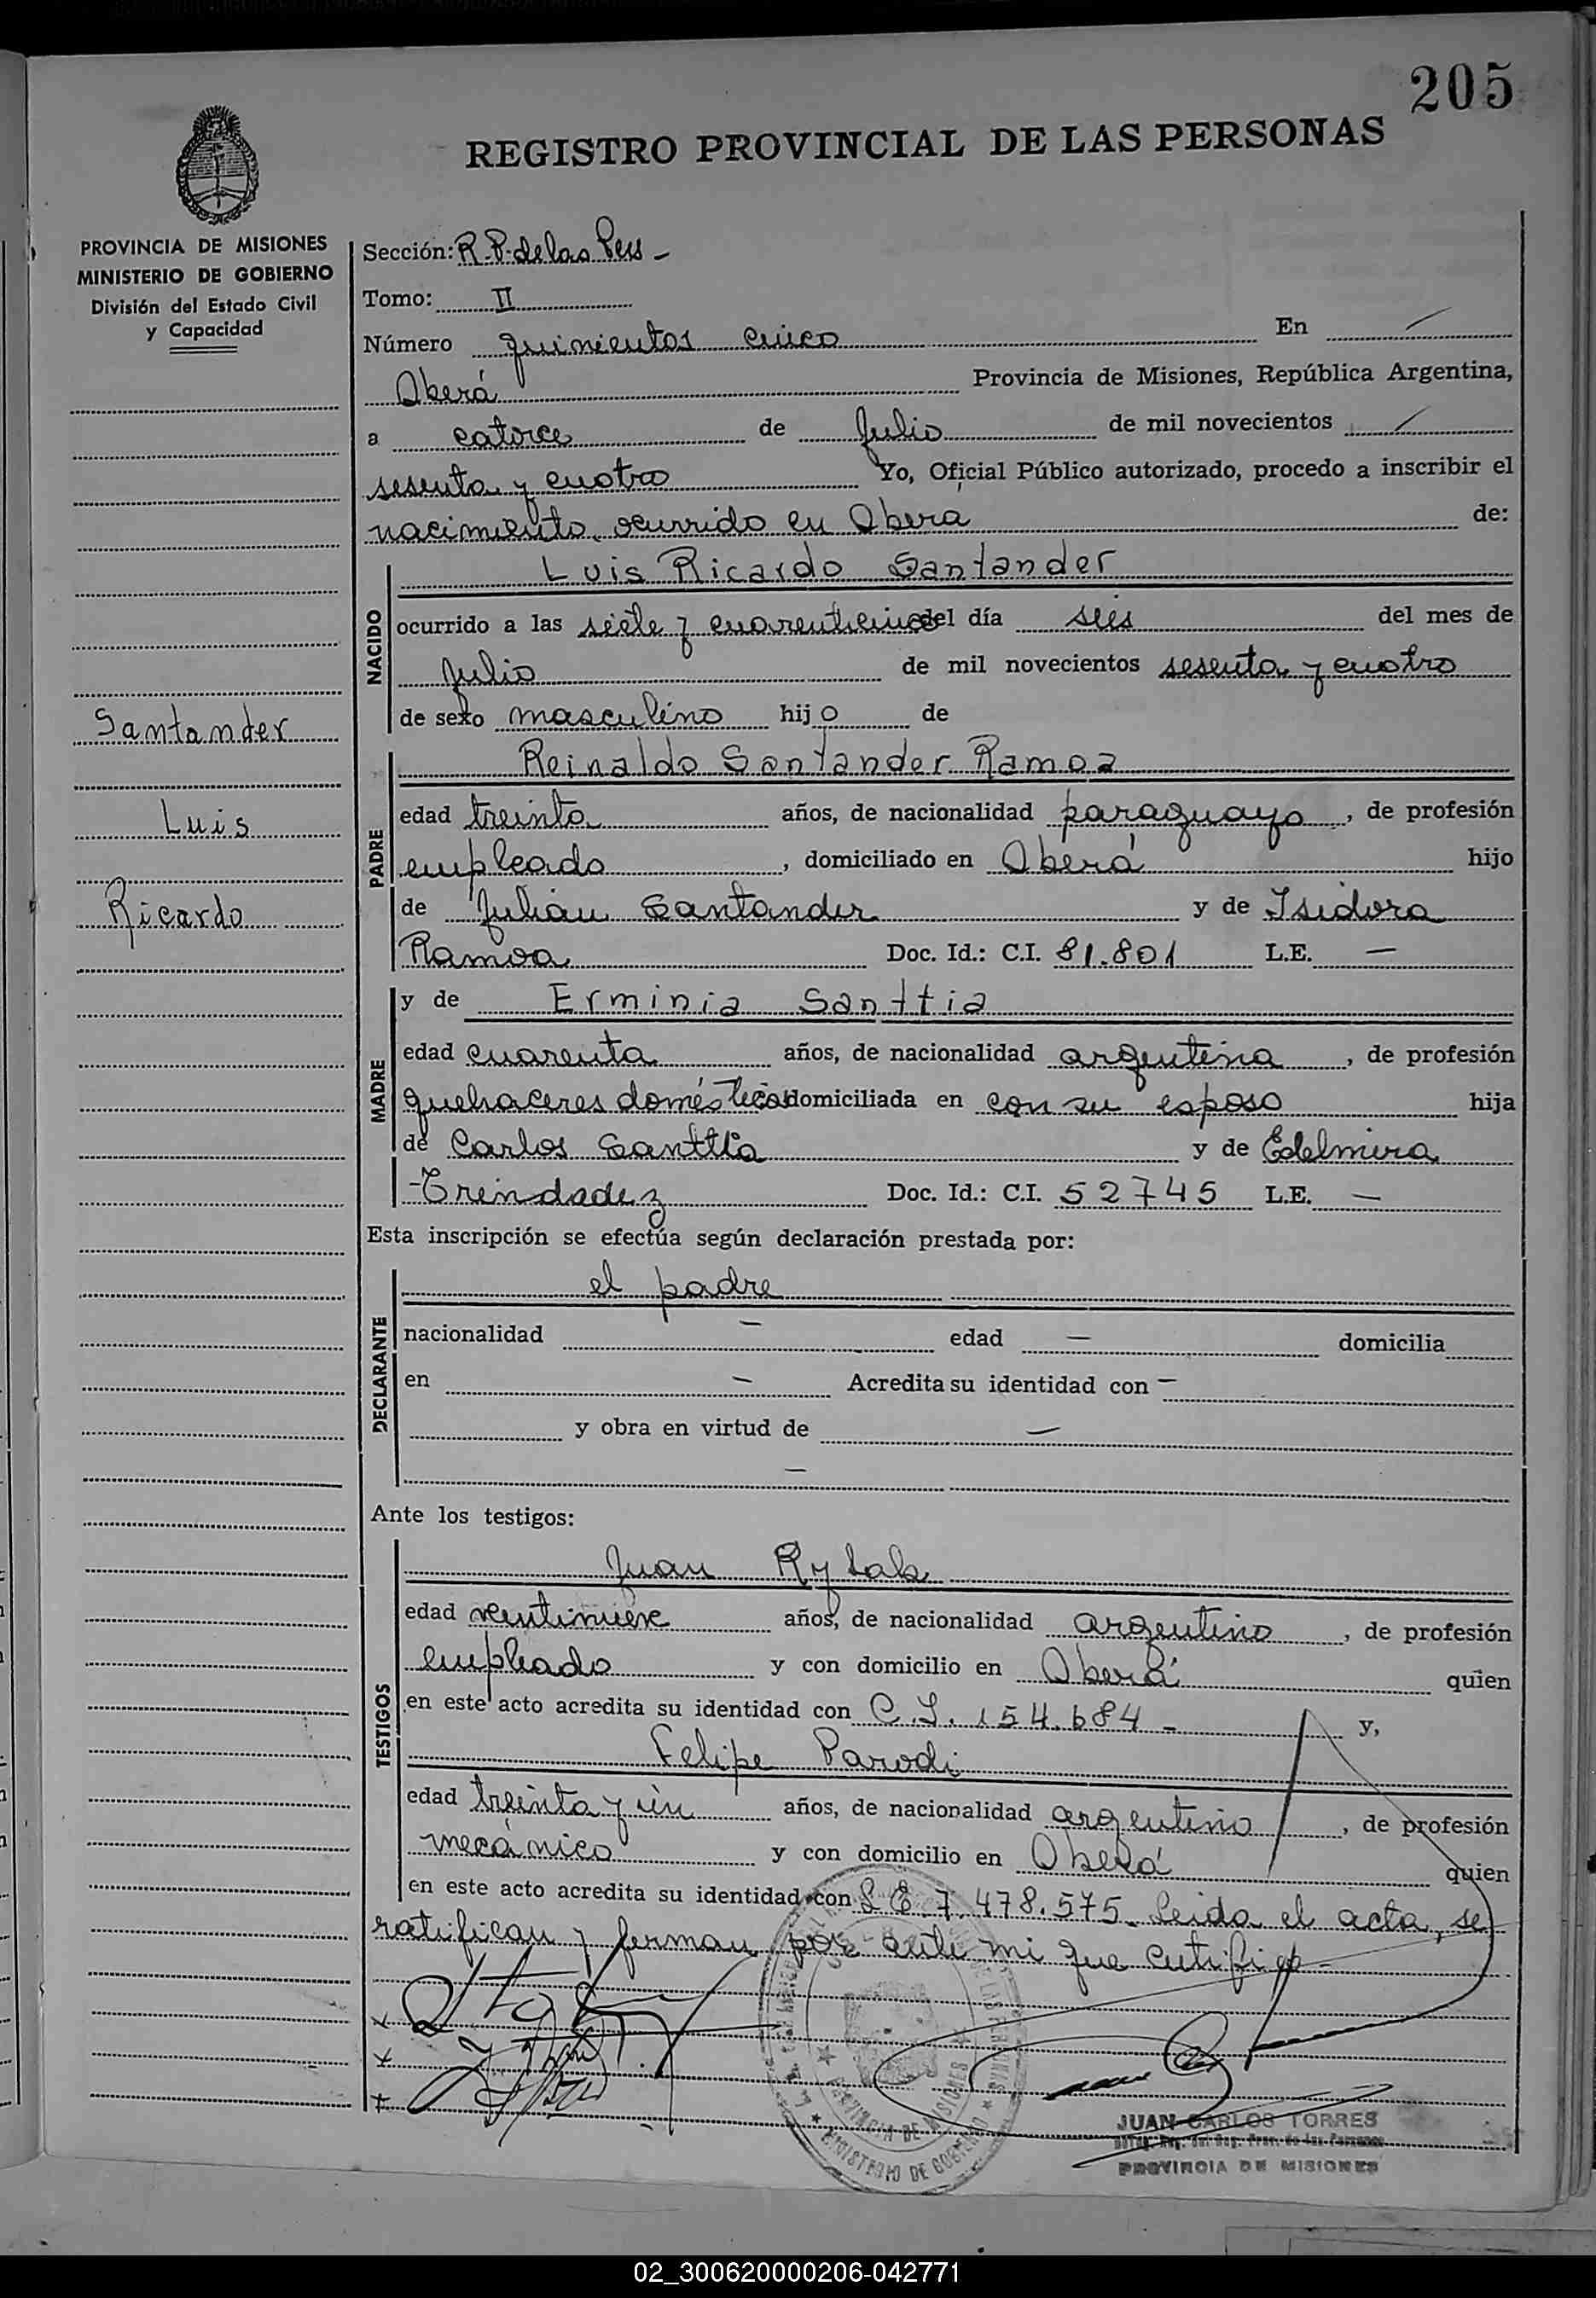 205
REGISTRO PROVINCIAL DE LAS PERSONAS
PROVINCIA DE MISIONES
MINISTERIO DE GOBIERNO
División del Estado Civil
y Capacidad
Santander
Luis
Ricardo
Sección: R.P. de las Pers -
Tomo: II
Número quinientos cinco En /
Oberá Provincia de Misiones, República Argentina,
a catorce de Julio de mil novecientos /
sesenta y cuatro Yo, Oficial Público autorizado, procedo a inscribir el
nacimiento ocurrido en Oberá de:
Luis Ricardo Santander
NACIDO
ocurrido a las siete y cuarenticinco del día seis del mes de
Julio de mil novecientos sesenta y cuatro
de sexo masculino hijo de
Reinaldo Santander Ramoa
PADRE
edad treinta años, de nacionalidad paraguayo, de profesión
empleado, domiciliado en Oberá hijo
de Julián Santander y de Isidora
Ramoa Doc. Id.: C.I. 81.801 L.E. —
MADRE
y de Erminia Santtia
edad cuarenta años, de nacionalidad argentina, de profesión
quehaceres domésticos domiciliada en con su esposo hija
de Carlos Santtia y de Edelmira
Trindadez Doc. Id.: C.I. 52745 L.E. —
Esta inscripción se efectúa según declaración prestada por:
DECLARANTE
el padre
nacionalidad — edad — domicilia
en — Acredita su identidad con —
y obra en virtud de —
—
Ante los testigos:
TESTIGOS
Juan
edad veintinueve años, de nacionalidad argentino, de profesión
empleado y con domicilio en Oberá quien
en este acto acredita su identidad con C.I. 154.684 - y,
Felipe Parodi
edad treinta y un años, de nacionalidad argentino, de profesión
mecánico y con domicilio en Oberá quien
en este acto acredita su identidad con L.E. 7.478.575. Leida el acta, se
ratifican y firman por ante mi que certifico -
PROVINCIA DE MISIONES
MINISTERIO DE GOBIERNO
JUAN CARLOS TORRES
PROVINCIA DE MISIONES
02_300620000206-042771